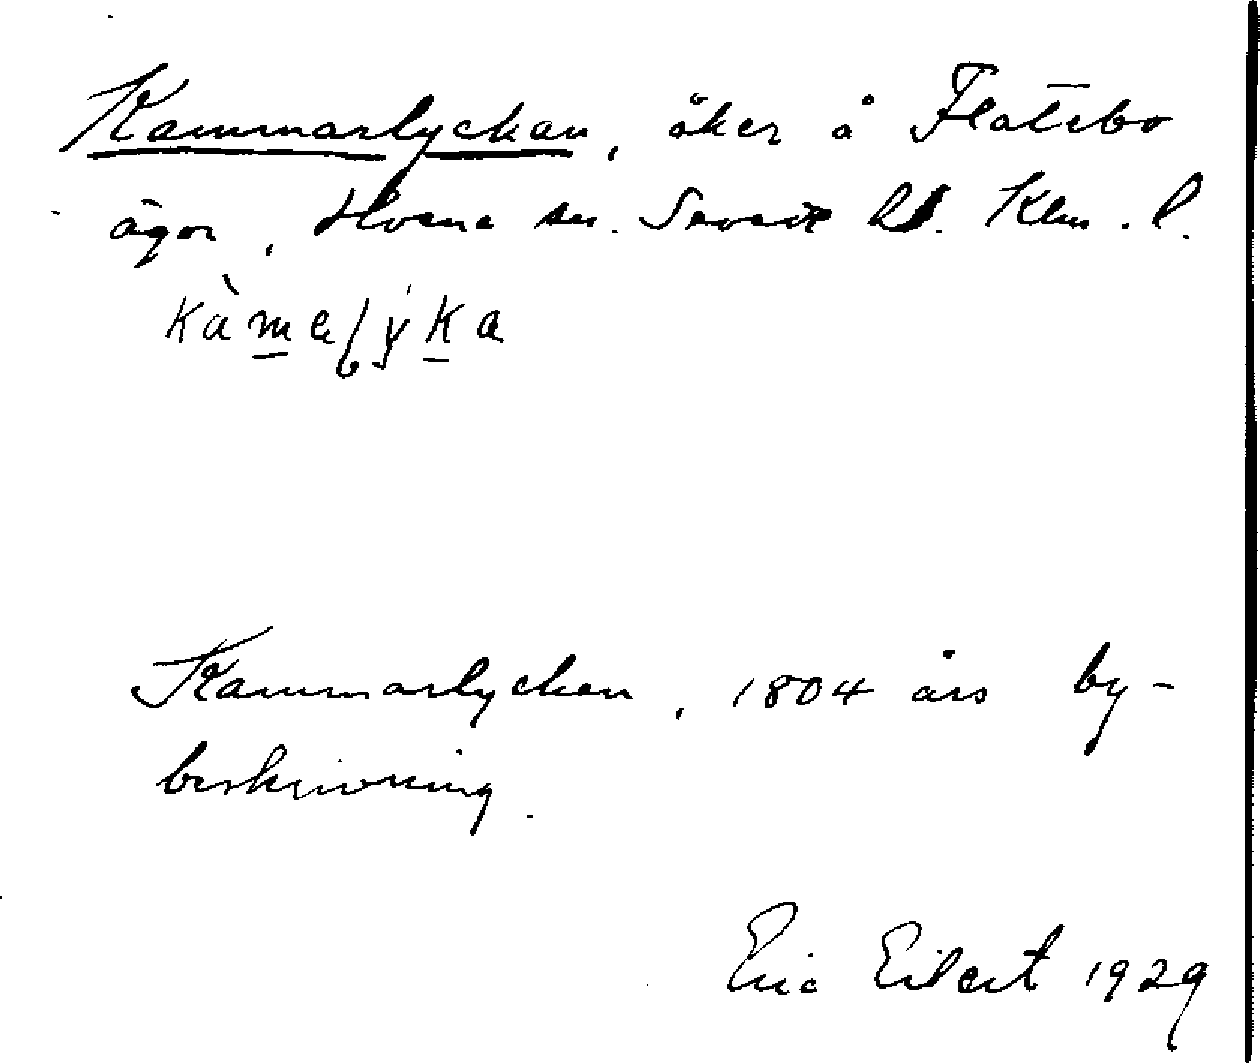 Kammarlyckan, åker å Flatebo
ägor, Hvena sn. Sevede hd. Klm. l.
kàmalyka
Kammarlyckan, 1804 års by-
beskrivning.
Eric Eilert 1929